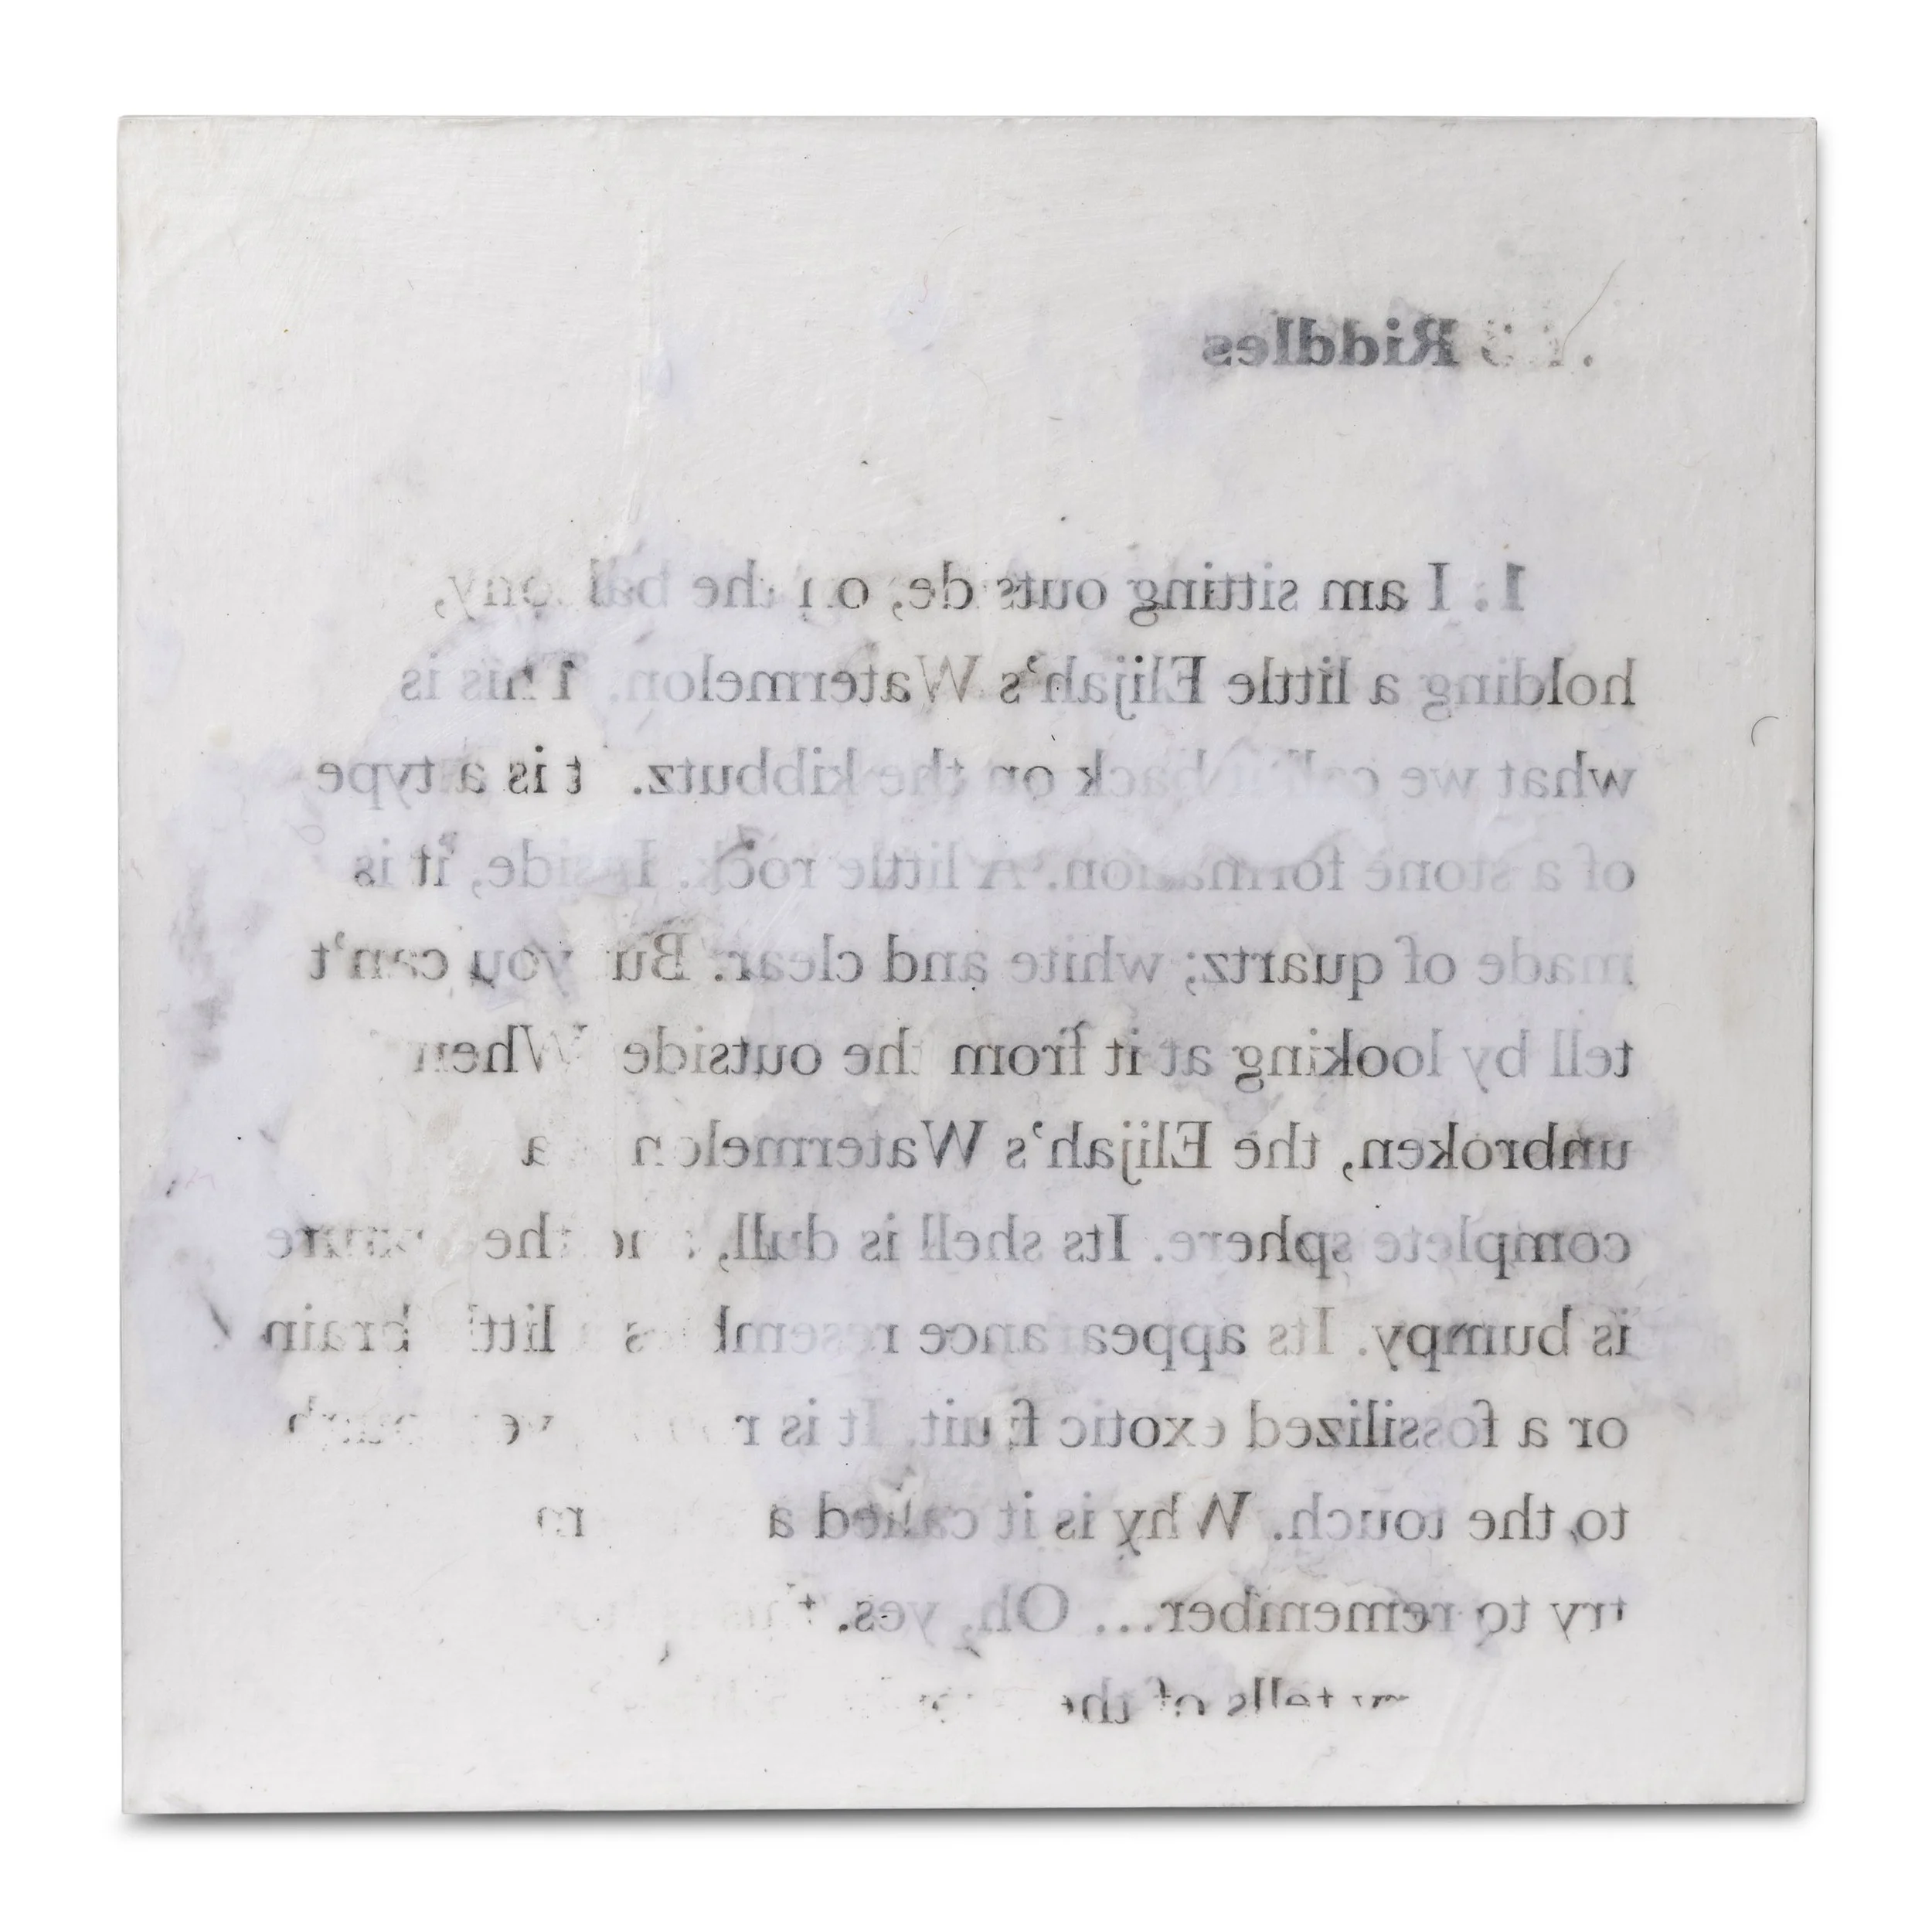 Riddles
1. I am sitting outside, on the balcony,
holding a little Elijah's Watermelon. This is
what we call it back on the kibbutz. It is a type
of a stone formation. A little rock. Inside, it is
made of quartz; white and clear. But you can't
tell by looking at it from the outside. When
unbroken, the Elijah's Watermelon is a
complete sphere. Its shell is dull, and the texture
is bumpy. Its appearance resembles a little brain
or a fossilized exotic fruit. It is
to the touch. Why is it called a
try to remember... Oh, yes, this
tells of the